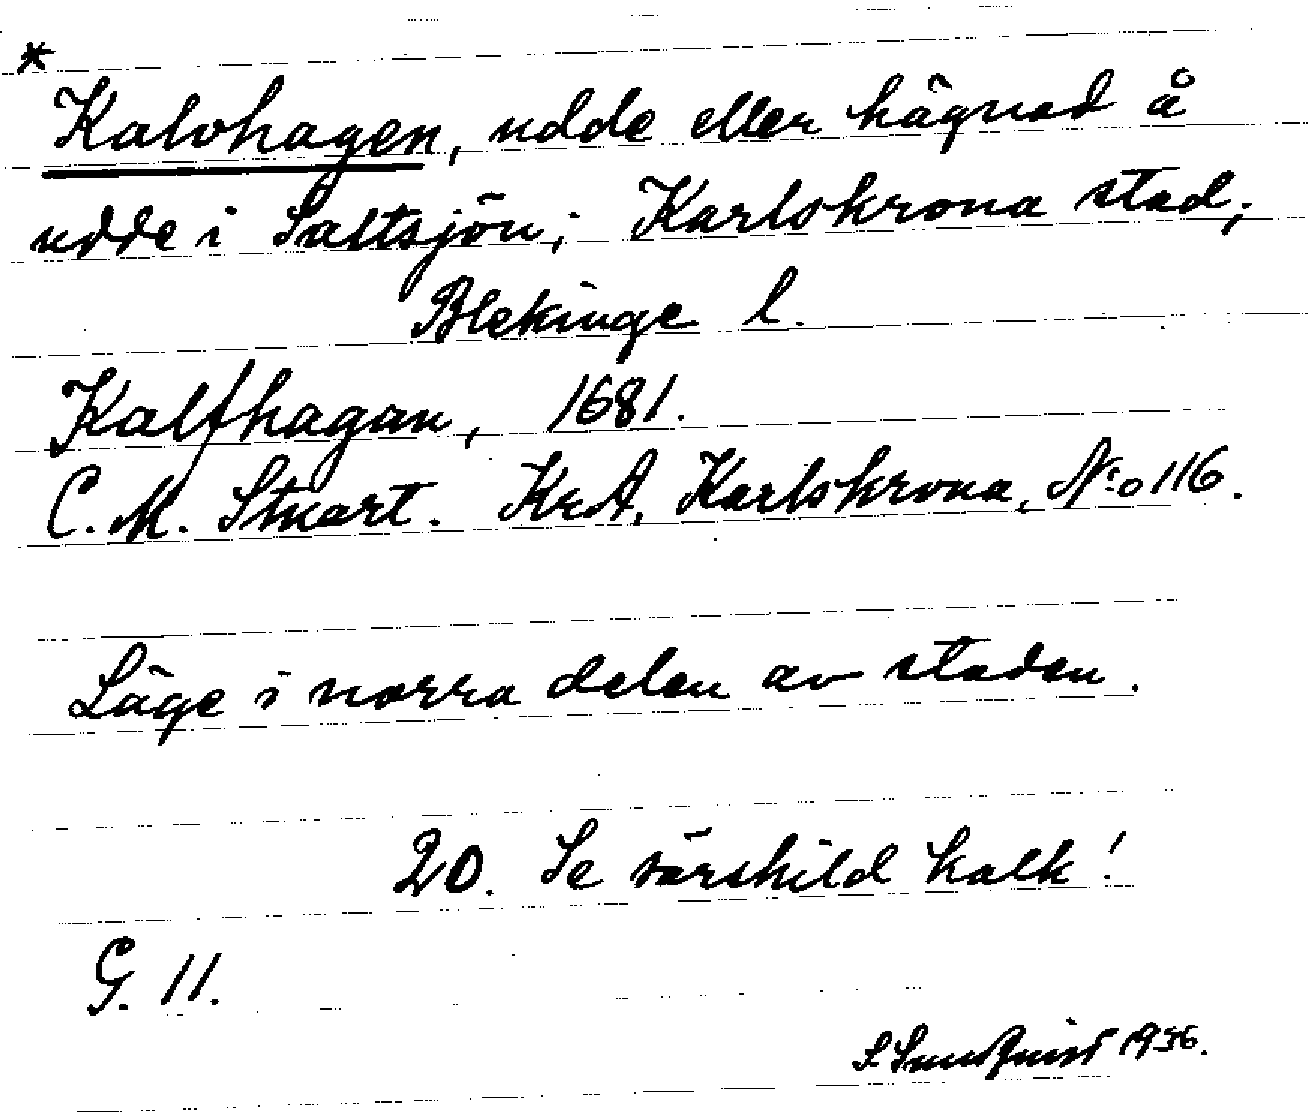 *
Kalvhagen, udde eller hägnad å
udde i Saltsjön; Karlskrona stad;
Blekinge l.
Kalfhagan, 1681.
C. M. Stuart. KrA, Karlskrona, N:o 116.
Läge i norra delen av staden.
20. Se särskild kalk!
G. 11.
S. Sundquist 1936.